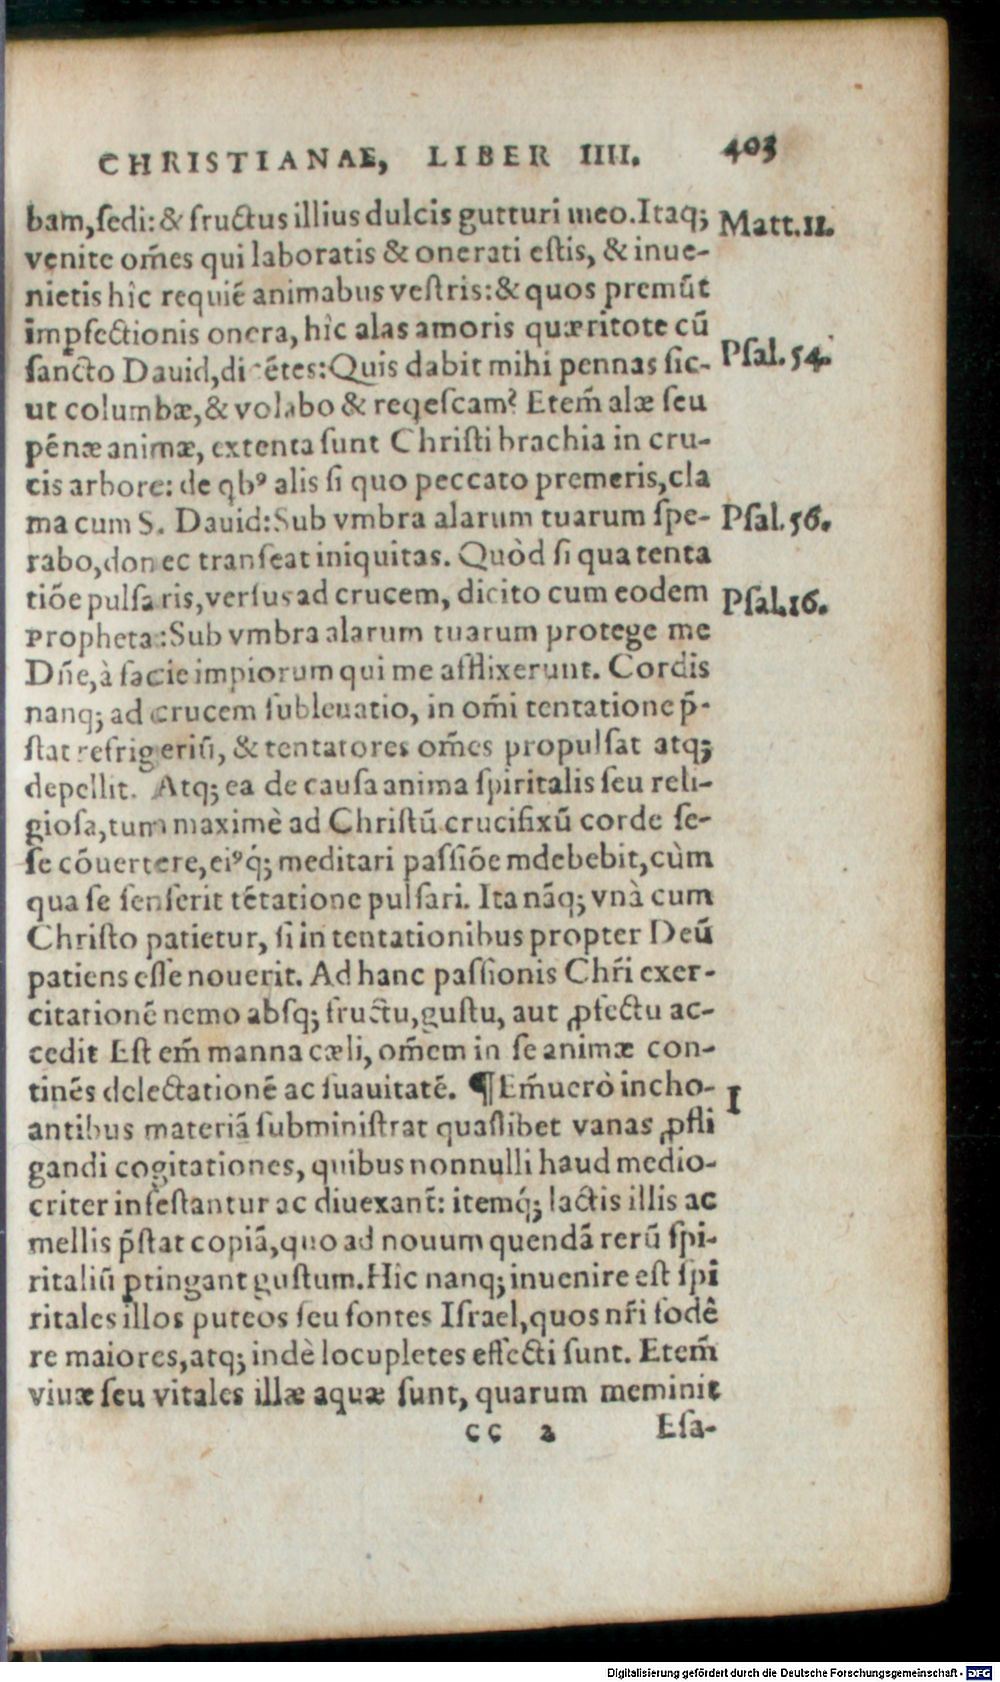 CHRISTIANAE, LIBER IIII. 403
bam, ſedi: & fructus illius dulcis gutturi meo. Itaq; Matt. 11.
venite om̃es qui laboratis & onerati eſtis, & inue-
nietis hîc requiẽ animabus veſtris: & quos premũt
imꝑfectionis onera, hîc alas amoris quæritote cũ
ſancto Dauid, dicẽtes: Quis dabit mihi pennas ſic- Pſal. 54.
ut columbæ, & volabo & reqeſcam? Etem̃ alæ ſeu
pẽnæ animæ, extenta ſunt Chriſti brachia in cru-
cis arbore: de qbꝰ alis ſi quo peccato premeris, cla
ma cum S. Dauid: Sub vmbra alarum tuarum ſpe- Pſal. 56.
rabo, donec tranſeat iniquitas. Quòd ſi qua tenta
tiõe pulſaris, verſus ad crucem, dicito cum eodem Pſal. 16.
Propheta: Sub vmbra alarum tuarum protege me
Dñe, à facie impiorum qui me afflixerunt. Cordis
nanq; ad crucem ſubleuatio, in om̃i tentatione p̃-
ſtat refrigeriũ, & tentatores om̃es propulſat atq;
depellit. Atq; ea de cauſa anima ſpiritalis ſeu reli-
gioſa, tum maximè ad Chriſtũ crucifixũ corde ſe-
ſe cõuertere, eiꝰq́; meditari paſſiõe mdebebit, cùm
qua ſe ſenſerit tẽtatione pulſari. Ita nãq; vnà cum
Chriſto patietur, ſi in tentationibus propter Deũ
patiens eſſe nouerit. Ad hanc paſſionis Chr̃i exer-
citationẽ nemo abſq; fructu, guſtu, aut ꝓfectu ac-
cedit Eſt em̃ manna cæli, om̃em in ſe animæ con-
tinẽs delectationẽ ac ſuauitatẽ. ¶ Em̃uerò incho- I
antibus materiã ſubminiſtrat quaſlibet vanas ꝓfli
gandi cogitationes, quibus nonnulli haud medio-
criter infeſtantur ac diuexant̃: itemq́; lactis illis ac
mellis p̃ſtat copiã, quo ad nouum quendã rerũ ſpi-
ritaliũ ꝑtingant guſtum. Hic nanq; inuenire eſt ſpi
ritales illos puteos ſeu fontes Iſrael, quos nr̃i fodê
re maiores, atq; indè locupletes effecti ſunt. Etem̃
viuæ ſeu vitales illæ aquæ ſunt, quarum meminit
cc 2 Eſa-
Digitalisierung gefördert durch die Deutsche Forschungsgemeinschaft - DFG